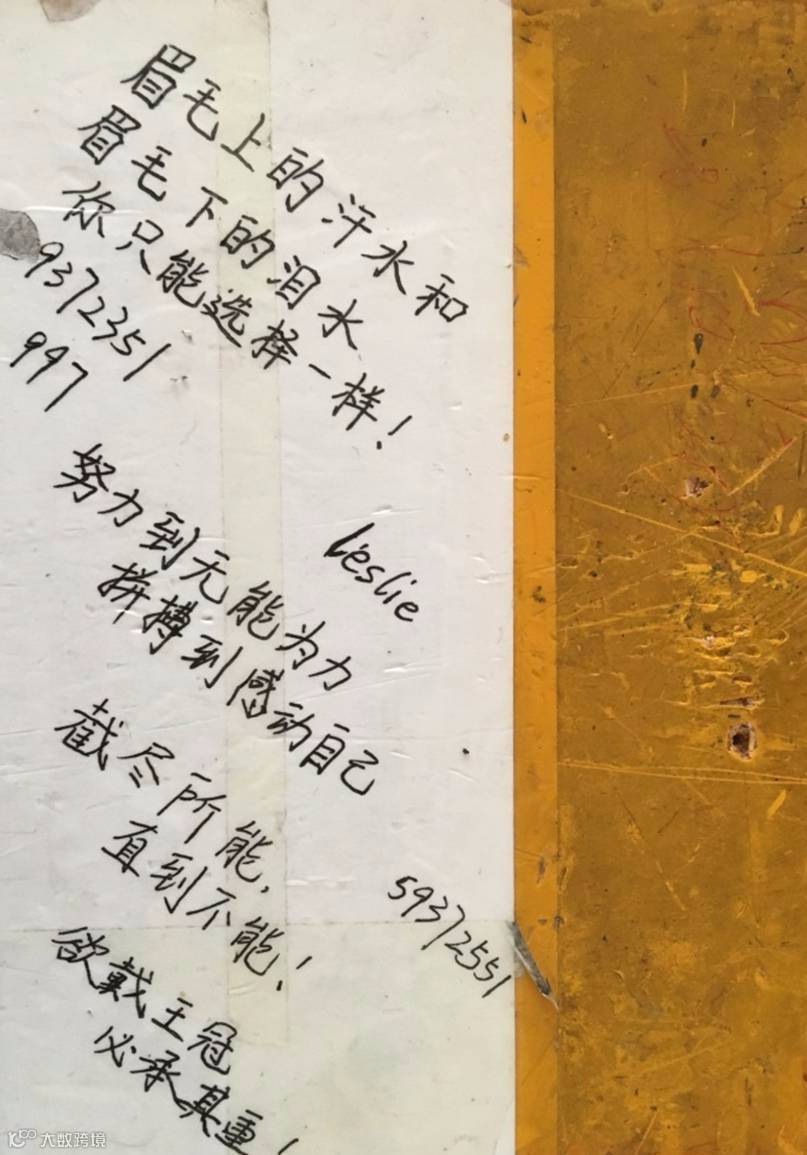 眉毛上的汗水和
眉毛下的泪水
你只能选择一样!
9372351
997
Leslie
努力到无能为力
拼搏到感动自己
截尽所能,
直到不能!
59372551
欲戴王冠
必承其重!
大数跨境